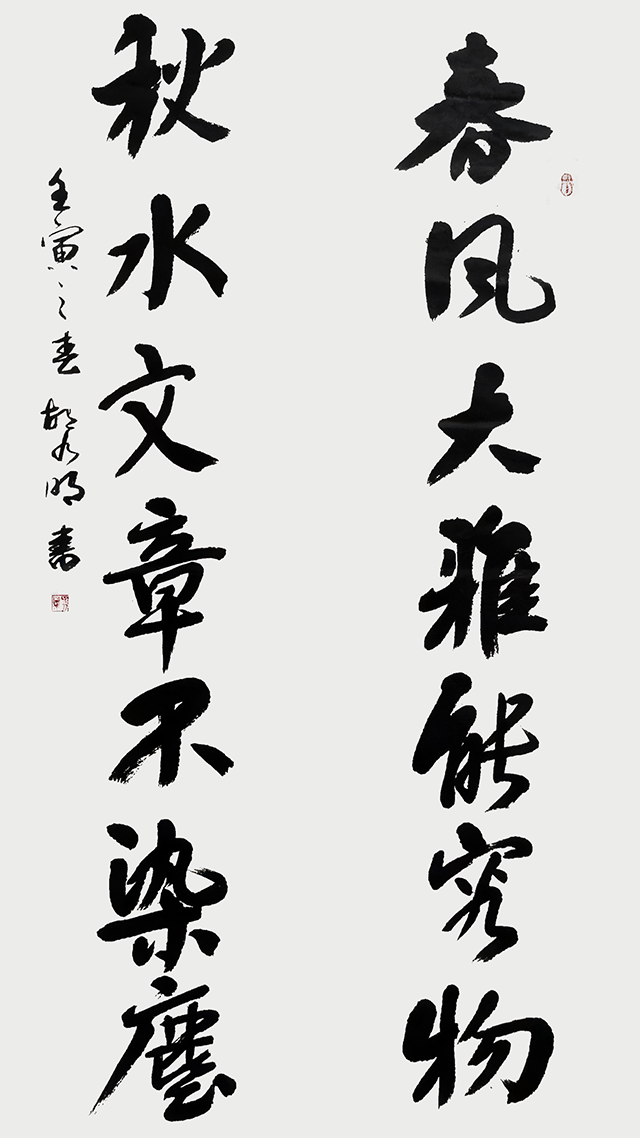 春风大雅能容物
秋水文章不染塵
壬寅之春 胡以明書